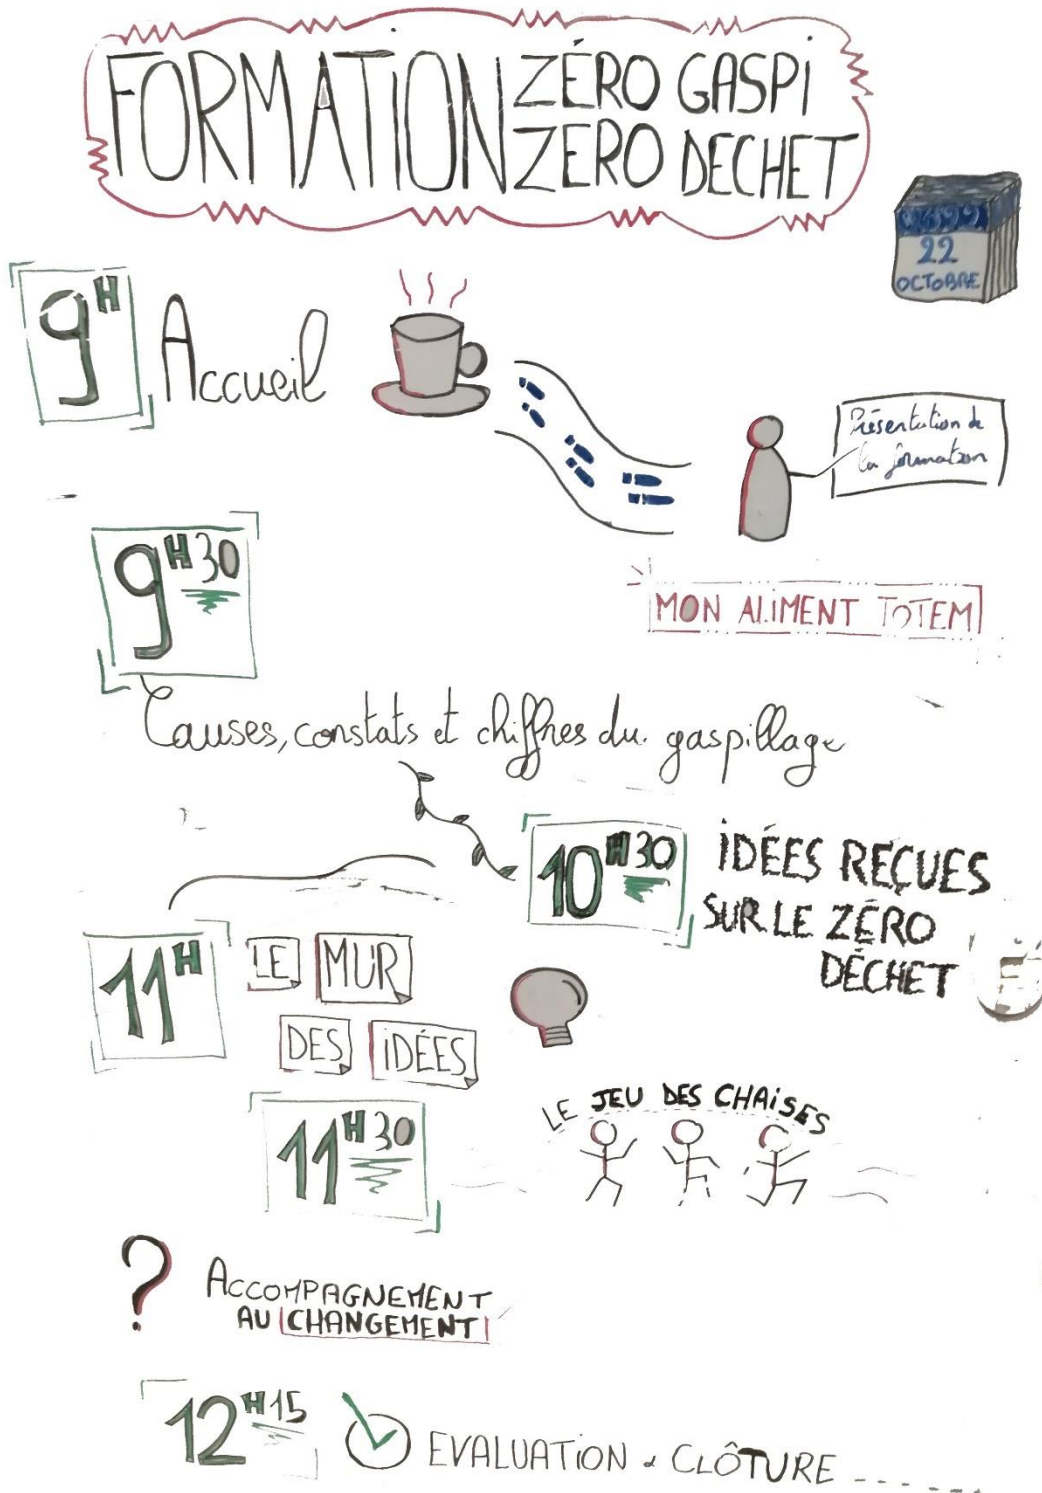 FORMATION ZÉRO GASPI
ZERO DECHET
22
OCTOBRE
9H Accueil
Présentation de
la formation
9H30
MON ALIMENT TOTEM
Causes, constats et chiffres du gaspillage
10H30 IDÉES REÇUES
SUR LE ZÉRO
DÉCHET
11H LE MUR
DES IDÉES
11H30 LE JEU DES CHAISES
? ACCOMPAGNEMENT
AU CHANGEMENT
12H15 EVALUATION & CLÔTURE